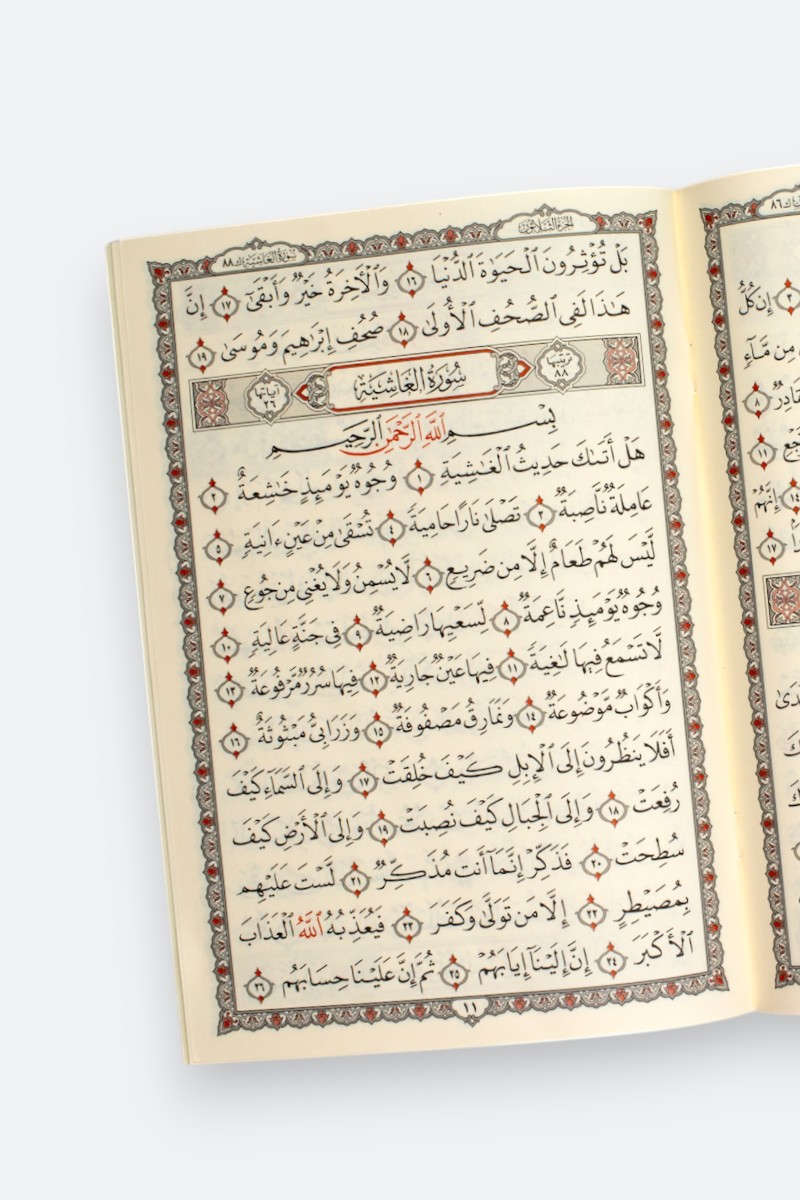 الجزء الثلاثون
سورة الغاشية ك ٨٨
بَلْ تُؤْثِرُونَ ٱلْحَيَوٰةَ ٱلدُّنْيَا ١٦ وَٱلْأَخِرَةُ خَيْرٌ وَأَبْقَىٰٓ ١٧ إِنَّ
هَٰذَا لَفِى ٱلصُّحُفِ ٱلْأُولَىٰ ١٨ صُحُفِ إِبْرَٰهِيمَ وَمُوسَىٰ ١٩
ترتيبها ٨٨
سُورَةُ الغَاشِيَةِ
آياتها ٢٦
بِسْمِ ٱللَّهِ ٱلرَّحْمَٰنِ ٱلرَّحِيمِ
هَلْ أَتَىٰكَ حَدِيثُ ٱلْغَٰشِيَةِ ١ وُجُوهٌ يَوْمَئِذٍ خَٰشِعَةٌ ٢
عَامِلَةٌ نَّاصِبَةٌ ٣ تَصْلَىٰ نَارًا حَامِيَةً ٤ تُسْقَىٰ مِنْ عَيْنٍ ءَانِيَةٍ ٥
لَّيْسَ لَهُمْ طَعَامٌ إِلَّا مِن ضَرِيعٍ ٦ لَّا يُسْمِنُ وَلَا يُغْنِى مِن جُوعٍ ٧
وُجُوهٌ يَوْمَئِذٍ نَّاعِمَةٌ ٨ لِّسَعْيِهَا رَاضِيَةٌ ٩ فِى جَنَّةٍ عَالِيَةٍ ١٠
لَّا تَسْمَعُ فِيهَا لَٰغِيَةً ١١ فِيهَا عَيْنٌ جَارِيَةٌ ١٢ فِيهَا سُرُرٌ مَّرْفُوعَةٌ ١٣
وَأَكْوَابٌ مَّوْضُوعَةٌ ١٤ وَنَمَارِقُ مَصْفُوفَةٌ ١٥ وَزَرَابِىُّ مَبْثُوثَةٌ ١٦
أَفَلَا يَنظُرُونَ إِلَى ٱلْإِبِلِ كَيْفَ خُلِقَتْ ١٧ وَإِلَى ٱلسَّمَآءِ كَيْفَ
رُفِعَتْ ١٨ وَإِلَى ٱلْجِبَالِ كَيْفَ نُصِبَتْ ١٩ وَإِلَى ٱلْأَرْضِ كَيْفَ
سُطِحَتْ ٢٠ فَذَكِّرْ إِنَّمَآ أَنتَ مُذَكِّرٌ ٢١ لَّسْتَ عَلَيْهِم
بِمُصَيْطِرٍ ٢٢ إِلَّا مَن تَوَلَّىٰ وَكَفَرَ ٢٣ فَيُعَذِّبُهُ ٱللَّهُ ٱلْعَذَابَ
ٱلْأَكْبَرَ ٢٤ إِنَّ إِلَيْنَآ إِيَابَهُمْ ٢٥ ثُمَّ إِنَّ عَلَيْنَا حِسَابَهُم ٢٦
١١